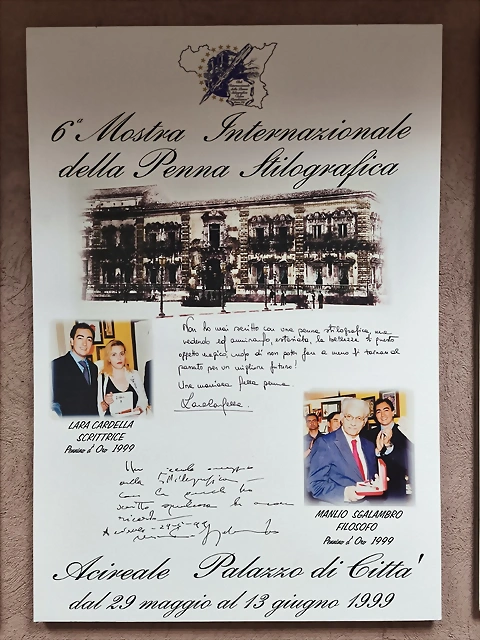 6ª Mostra Internazionale
della Penna Stilografica
Non ho mai scritto con una penna stilografica, ma
vedendo ed ammirando, estasiata, la bellezza di questo
oggetto magico, credo di non poter fare a meno di tornare al
passato per un migliore futuro!
Una maniaca della penna
Lara Cardella
LARA CARDELLA
SCRITTRICE
Pennino d'Oro 1999
Un piccolo omaggio
alla stilografica
con la quale ho
scritto qualcosa
Acireale
MANLIO SGALAMBRO
FILOSOFO
Pennino d'Oro 1999
Acireale Palazzo di Citta'
dal 29 maggio al 13 giugno 1999